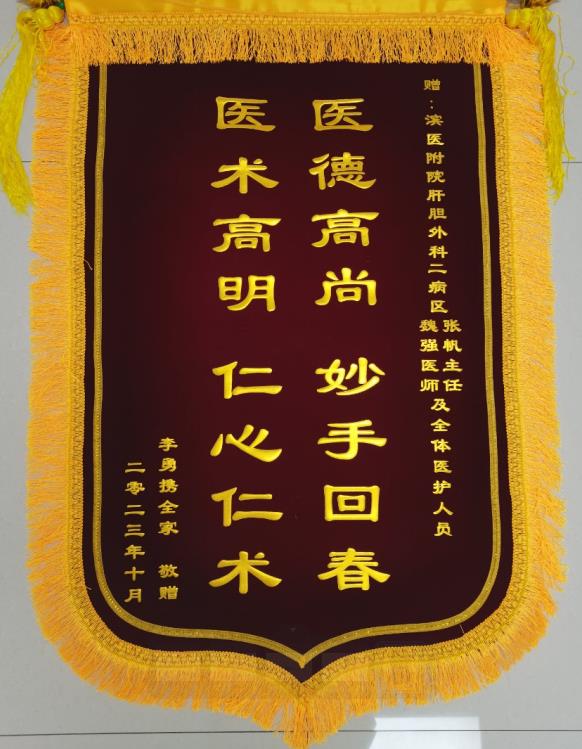 赠：滨医附院肝胆外科二病区
张帆主任
魏强医师
及全体医护人员
医德高尚 妙手回春
医术高明 仁心仁术
李勇携全家 敬赠
二零二三年十月